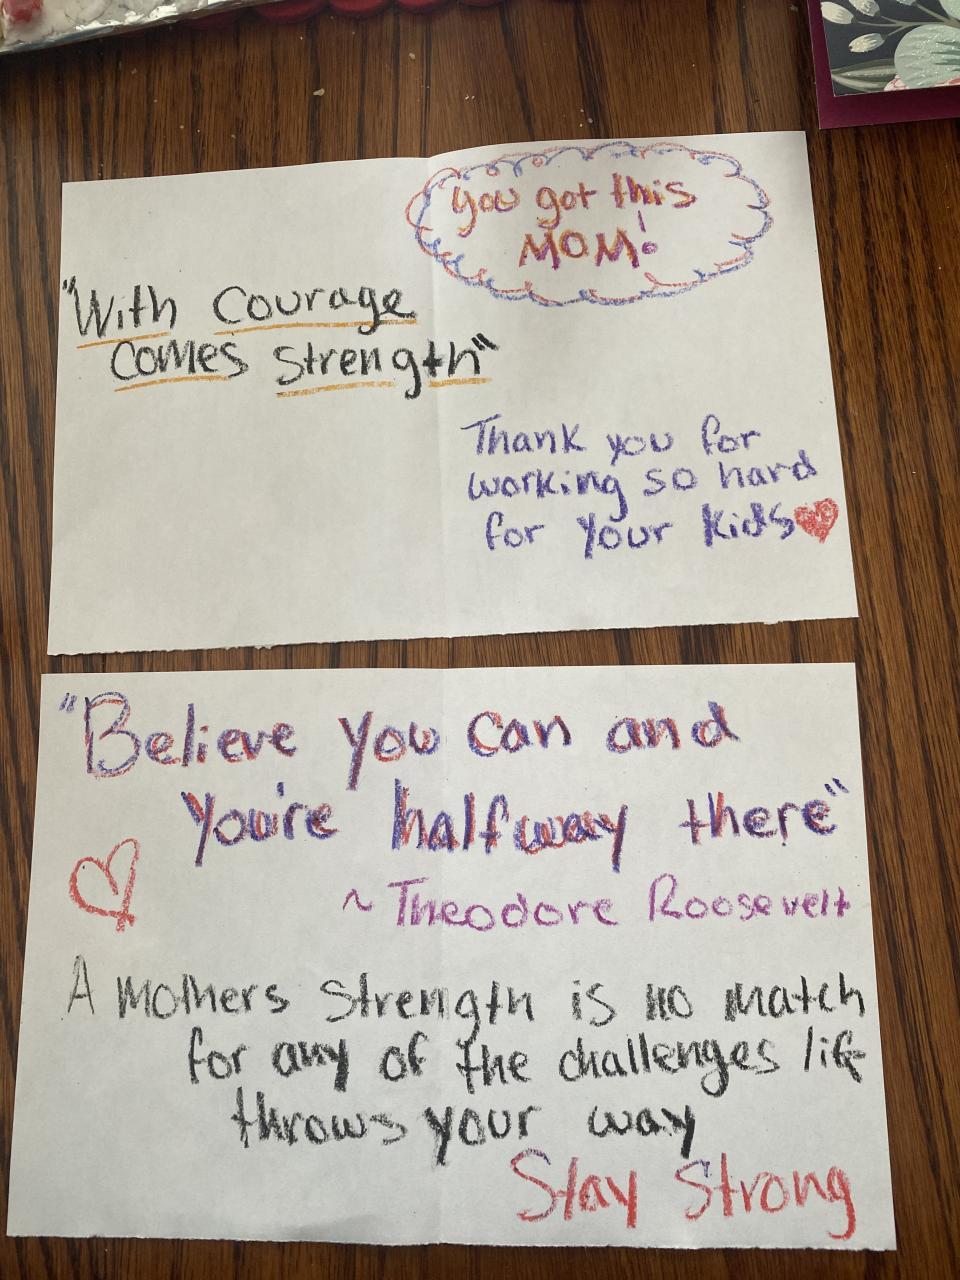 You got this
MOM!
"With Courage
comes strength"
Thank you for
working so hard
for your kids
"Believe you can and
you're halfway there"
~ Theodore Roosevelt
A Mothers strength is no match
for any of the challenges life
throws your way
Stay Strong